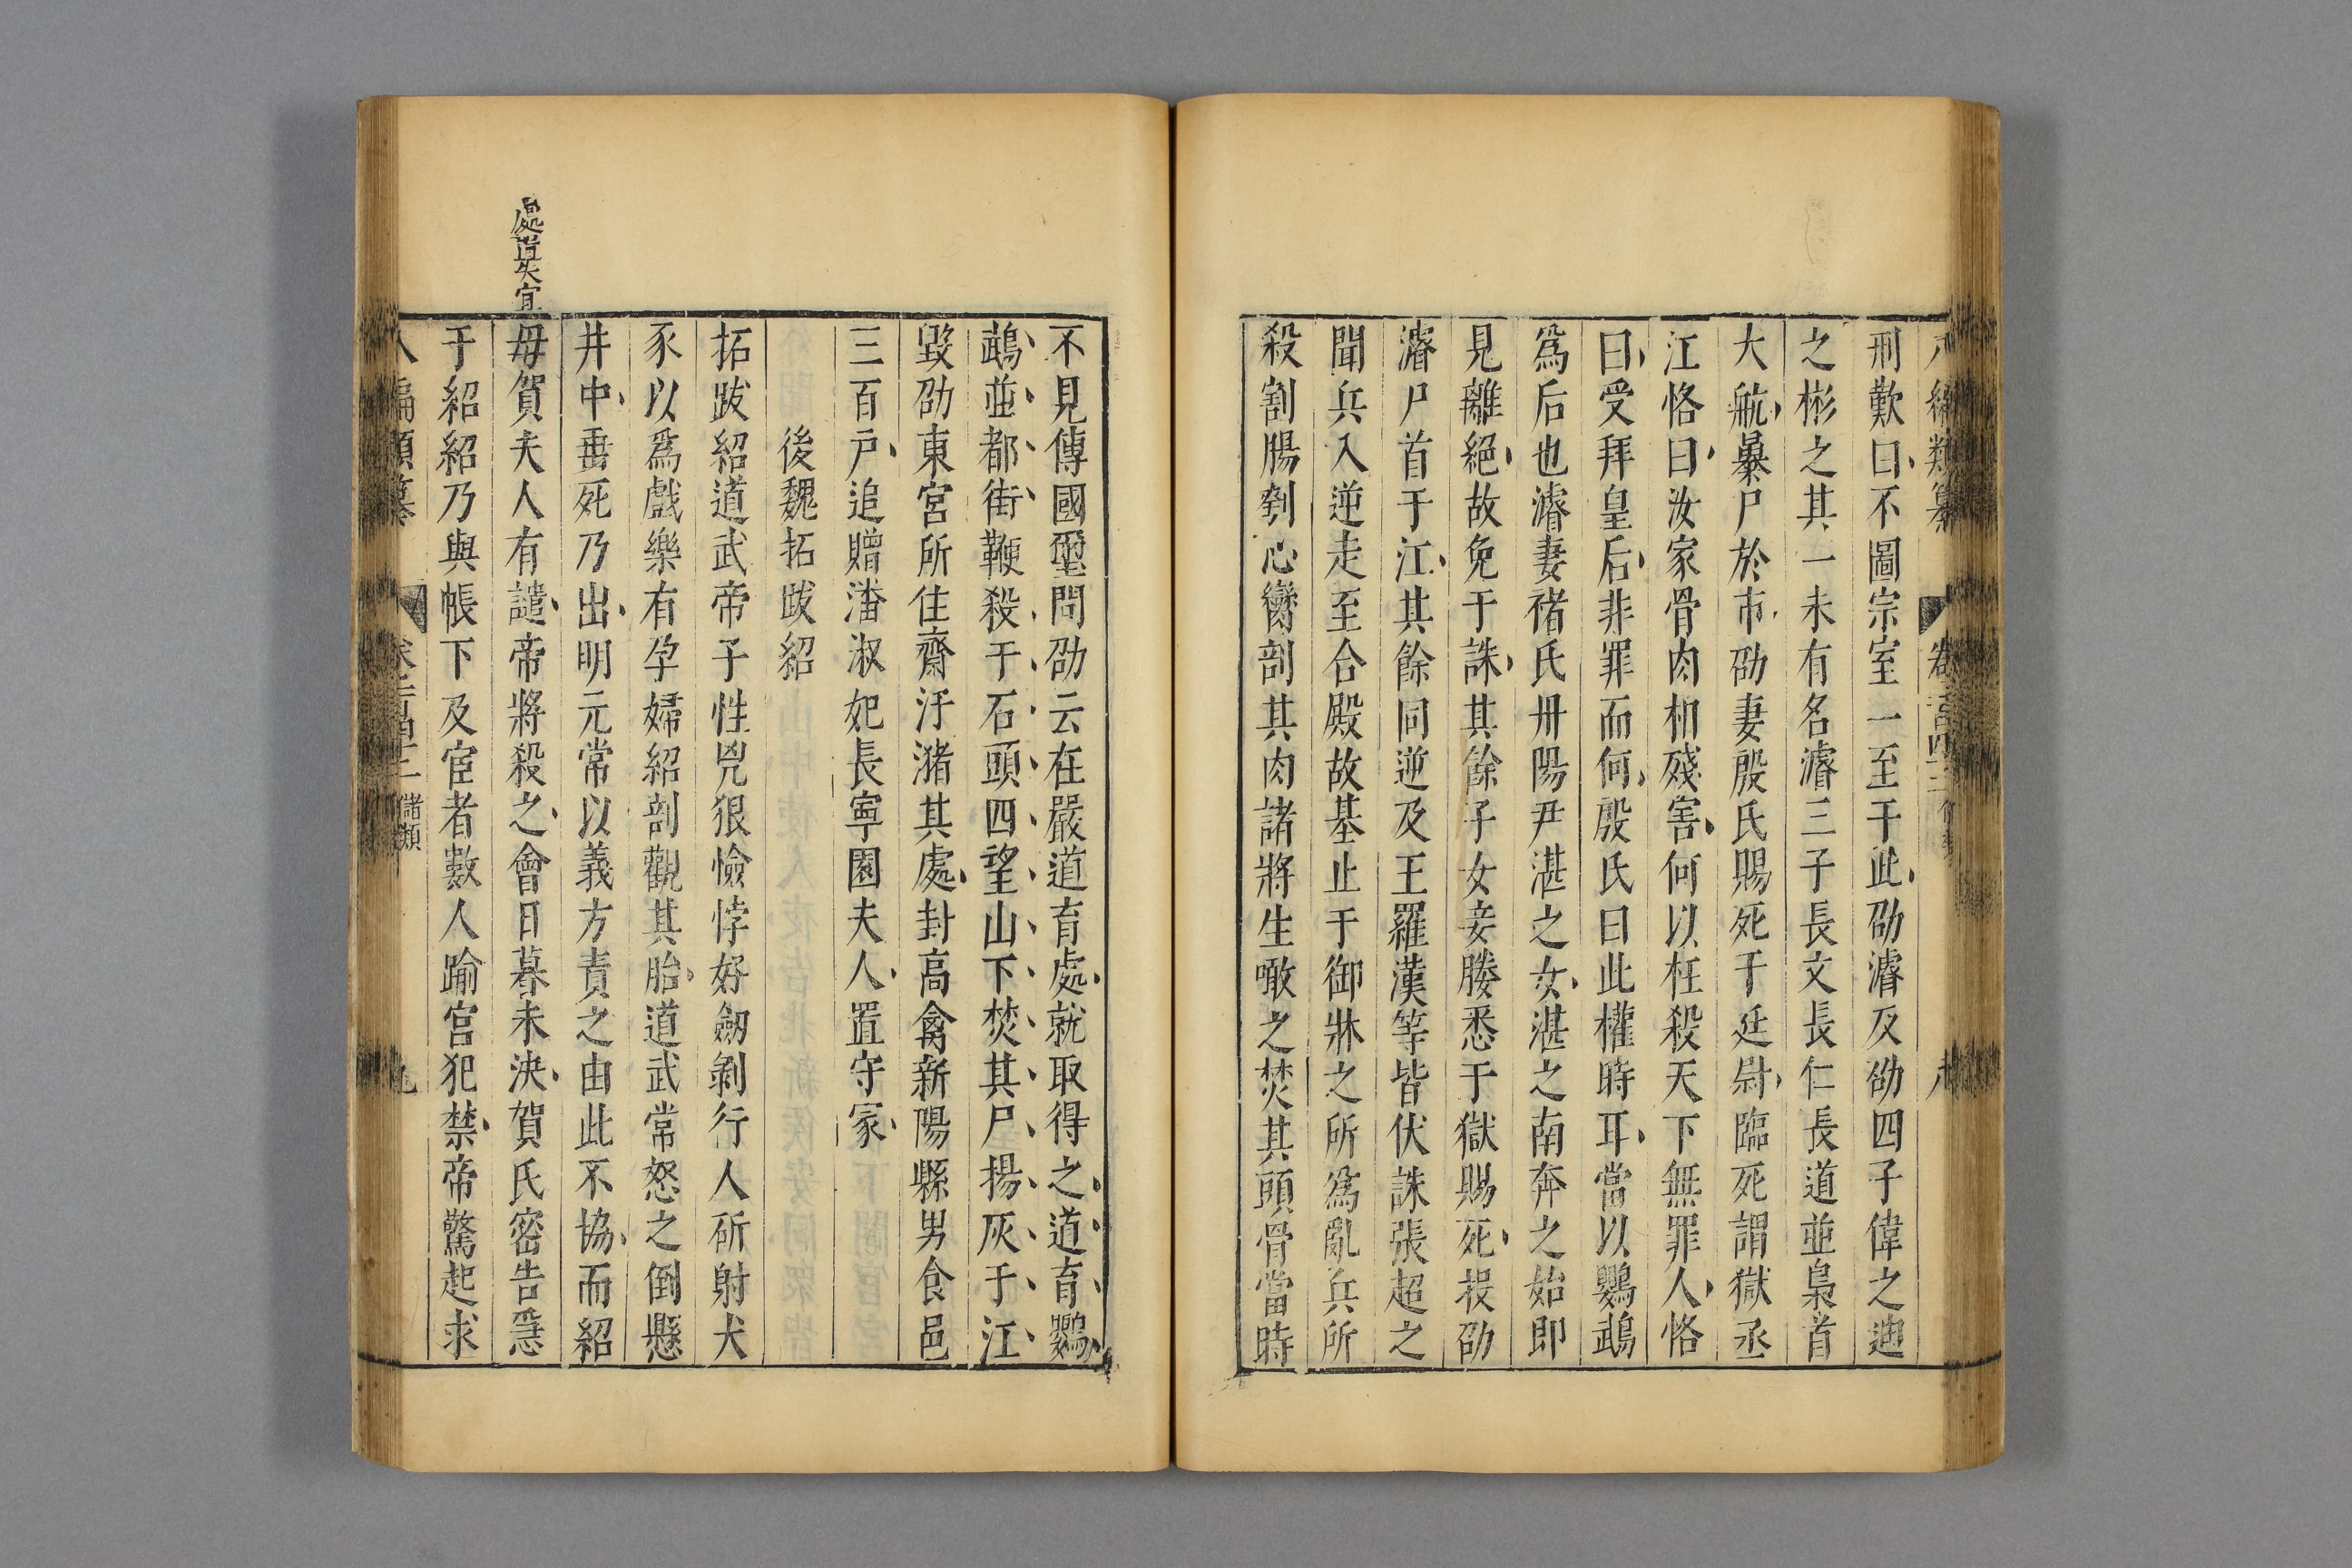 刑歎曰不圖宗室一至于此劭濬及劭四子偉之迪
之彬之其一未有名濬三子長文長仁長道並梟首
大航暴尸於市劭妻殷氏賜死于廷尉臨死謂獄丞
江恪曰汝家骨肉相殘害何以枉殺天下無罪人恪
曰受拜皇后非罪而何殷氏曰此權時耳當以鸚鵡
爲后也濬妻褚氏丹陽尹湛之女湛之南奔之始即
見離絕故免于誅其餘子女妾媵悉于獄賜死投劭
濬尸首于江其餘同逆及王羅漢等皆伏誅張超之
聞兵入逆走至合殿故基止于御牀之所爲亂兵所
殺割腸刳心臠剖其肉諸將生噉之焚其頭骨當時
不見傳國璽問劭云在嚴道育處就取得之道育鸚
鵡並都街鞭殺于石頭四望山下焚其尸揚灰于江
毀劭東宮所住齋汙瀦其處封高禽新陽縣男食邑
三百戶追贈潘淑妃長寧園夫人置守冢
後魏拓跋紹
拓跋紹道武帝子性兇狠憸悖好劫剝行人斫射犬
豕以爲戲樂有孕婦紹剖觀其胎道武常怒之倒懸
井中垂死乃出明元常以義方責之由此不協而紹
母賀夫人有譴帝將殺之會日暮未決賀氏密告急
于紹紹乃與帳下及宦者數人踰宮犯禁帝驚起求
處置失宜
儲類